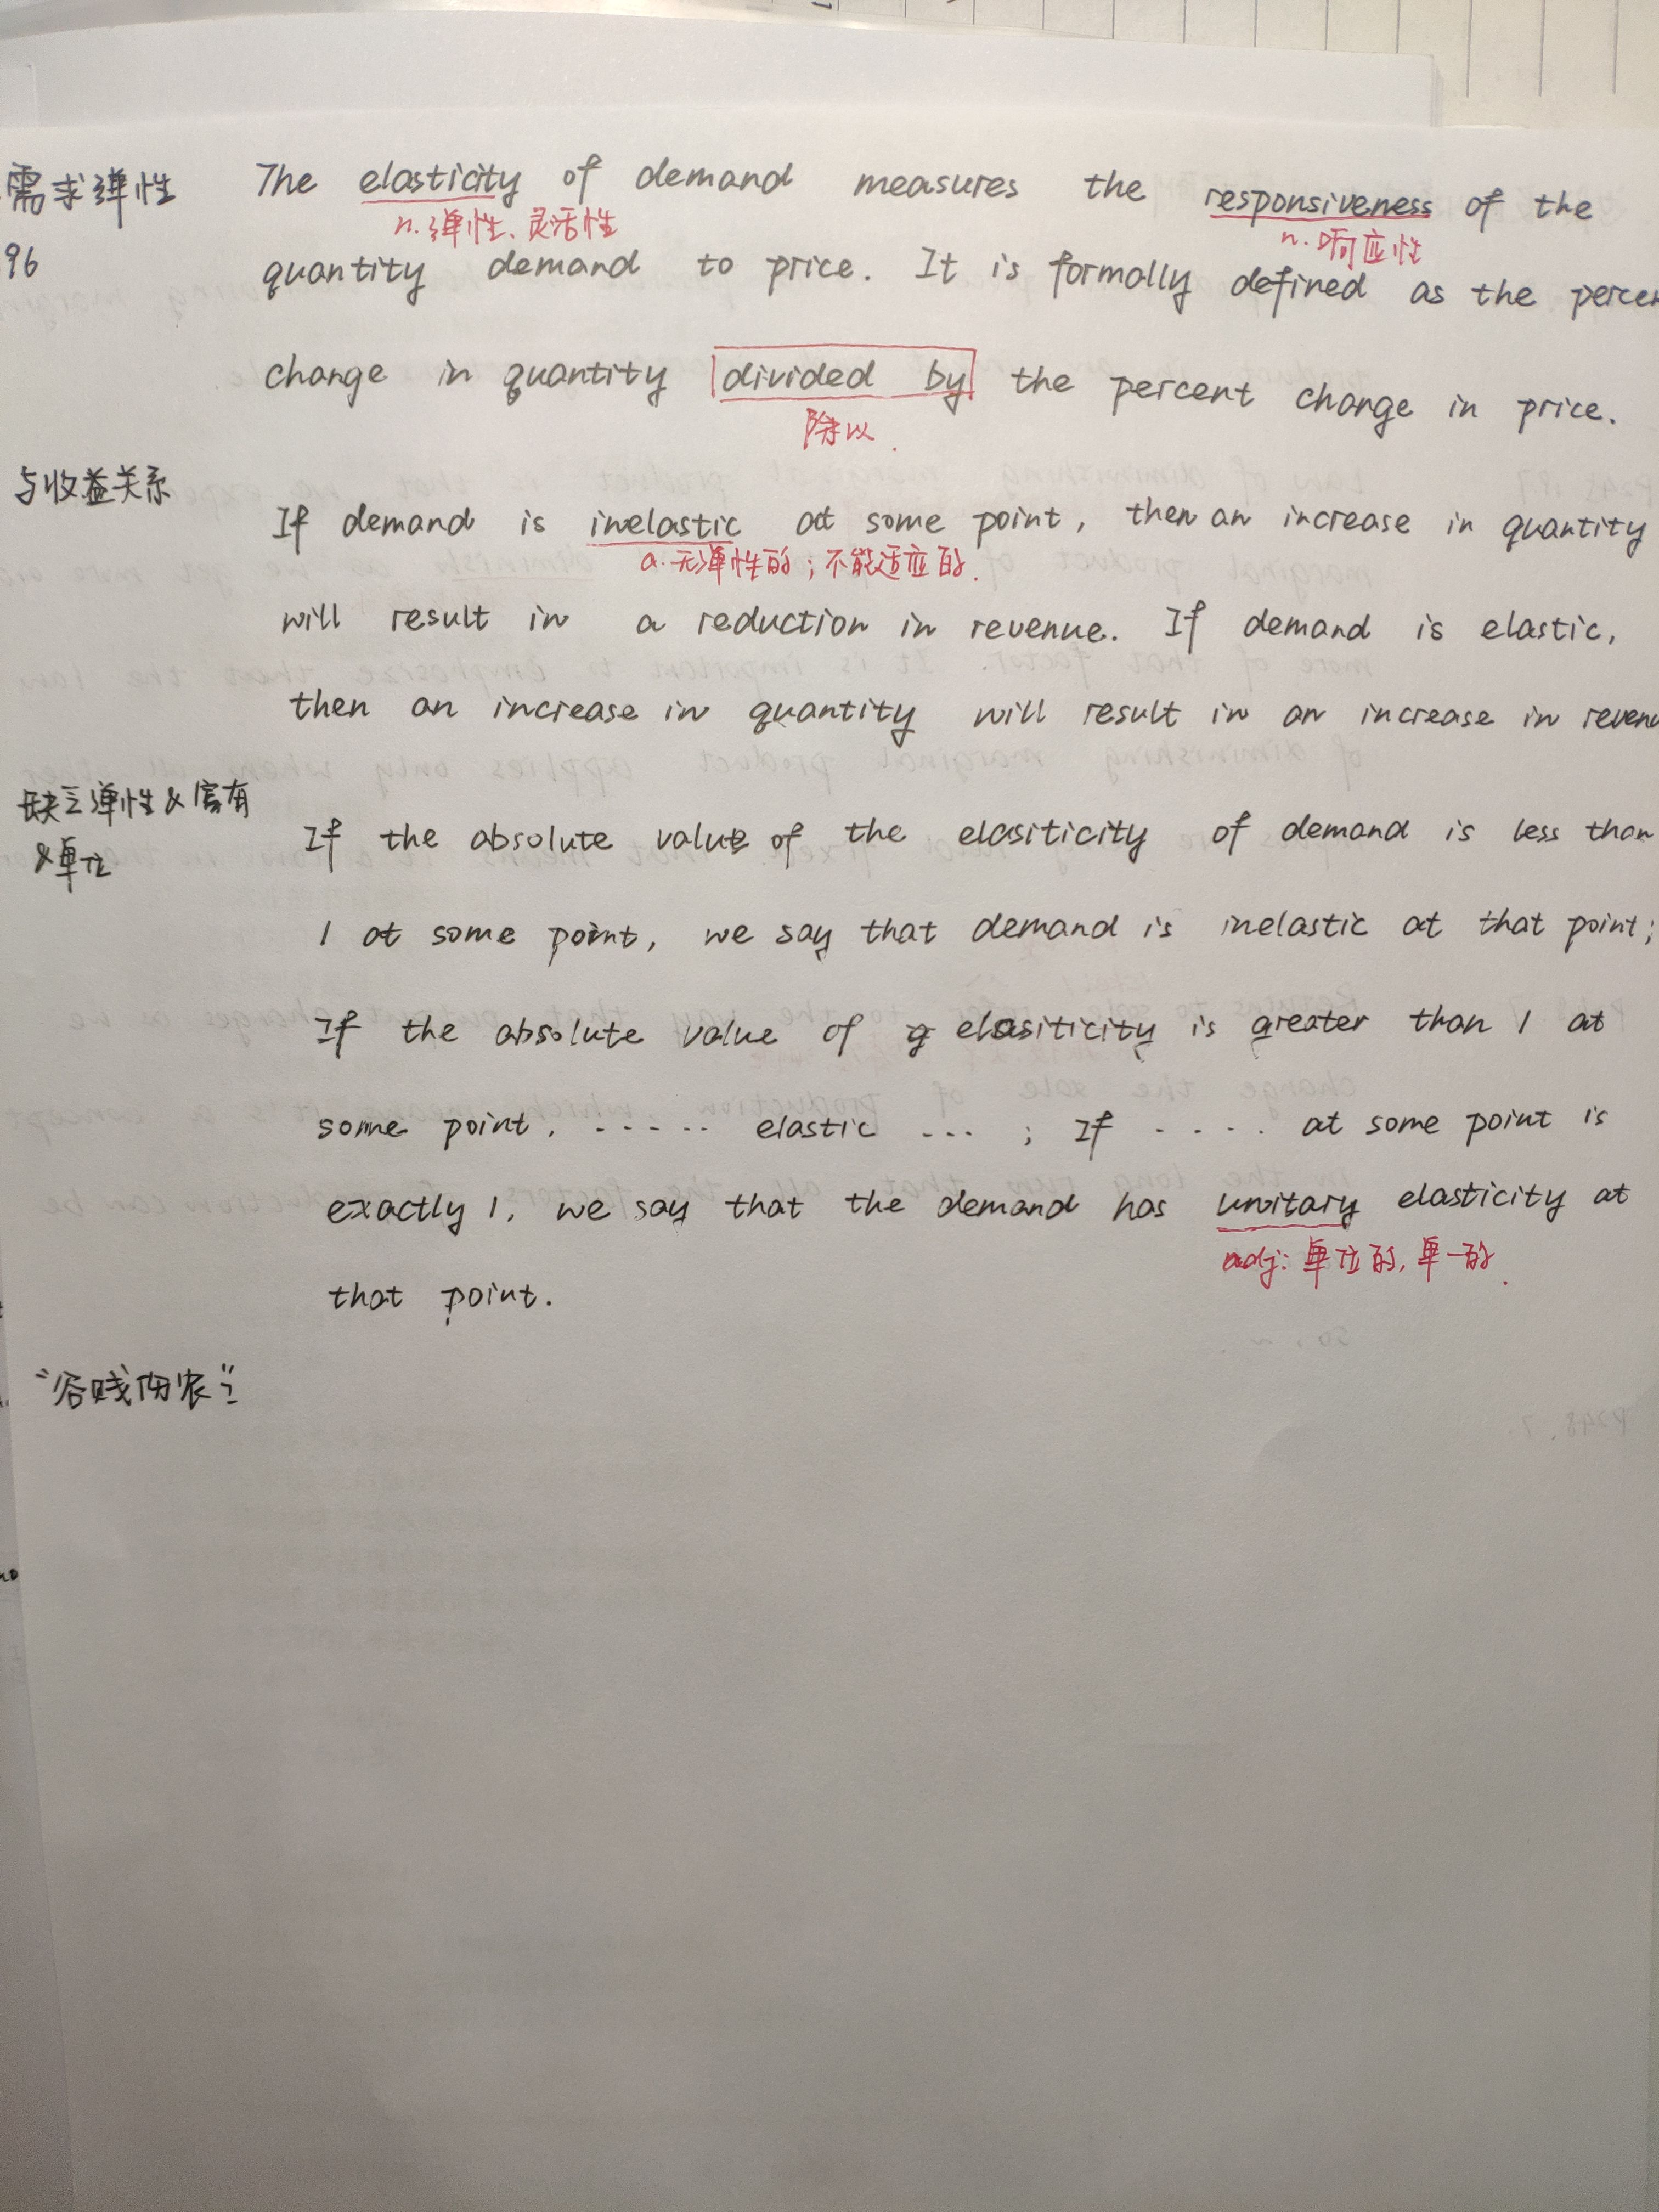 需求弹性 The elasticity of demand measures the responsiveness of the
n. 弹性、灵活性 n. 响应性
96 quantity demand to price. It is formally defined as the percen
change in quantity divided by the percent change in price.
除以.
与收益关系
If demand is inelastic at some point, then an increase in quantity
a. 无弹性的; 不能适应的.
will result in a reduction in revenue. If demand is elastic,
then an increase in quantity will result in an increase in revenu
缺乏弹性&富有
If the absolute value of the elasiticity of demand is less than
&单位
1 at some point, we say that demand is inelastic at that point;
If the absolute value of elasiticity is greater than 1 at
some point, ..... elastic ... ; If .... at some point is
exactly 1, we say that the demand has unitary elasticity at
adj: 单位的, 单一的.
that point.
"谷贱伤农"